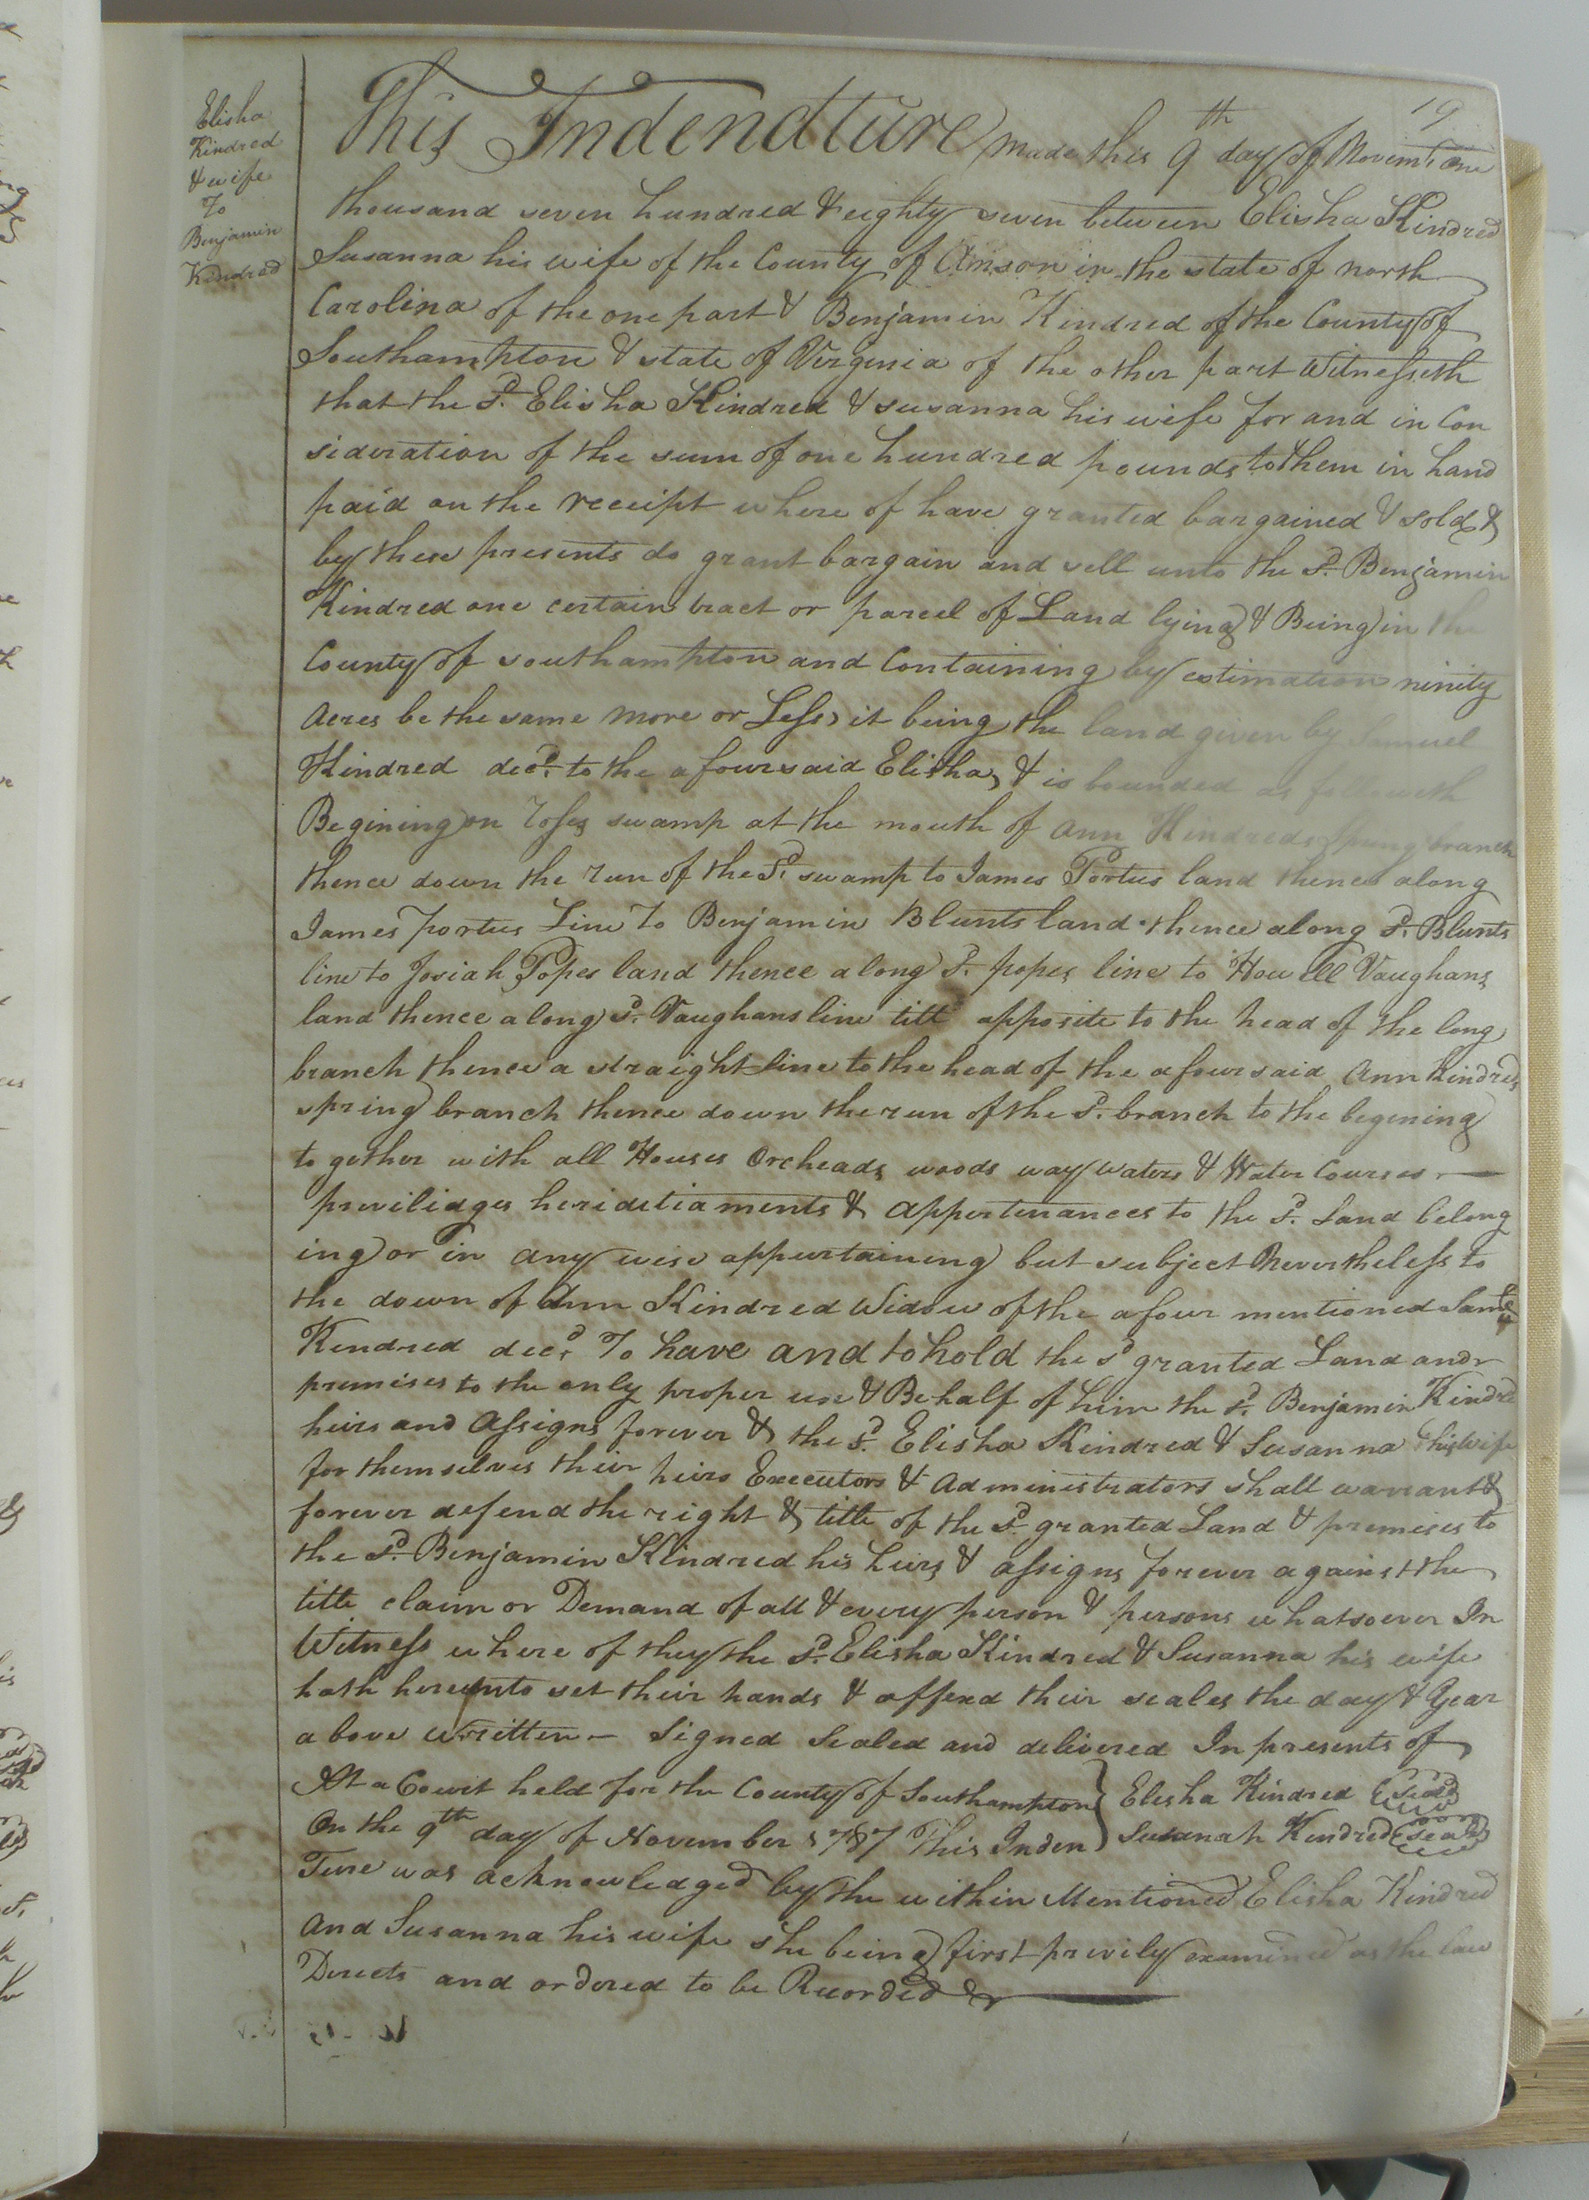 19
Elisha
Kindred
& wife
To
Benjamin
Kindred
This Indendture made this 9th day of Novemr. one
thousand seven hundred & eighty seven between Elisha Kindred
Susanna his wife of the County of Anson in the state of north
Carolina of the one part & Benjamin Kindred of the County of
Southampton & state of Virginia of the other part Witnesseth
that the Sd. Elisha Kindred & susanna his wife for and in Con
sideration of the sum of one hundred pounds to them in hand
paid on the receipt where of have granted bargained & sold &
by these presents do grant bargain and sell unto the Sd. Benjamin
Kindred one certain tract or parcel of Land lying & Being in the
County of southampton and Containing by estimation ninity
Acres be the same more or Less it being the land given by Samuel
Kindred decd. to the afoursaid Elisha, & is bounded as followeth
Begining on swamp at the mouth of Ann Kindreds spring branch
thence down the run of the Sd. swamp to James Portus land thence along
James portus Line To Benjamin Blunts land thence along Sd. Blunts
line to Josiah Popes land thence along Sd. popes line to Howell Vaughans
land thence along Sd. Vaughans line till apposite to the head of the long
branch thence a straight line to the head of the afoursaid Ann Kindreds
spring branch thence down the run of the Sd. branch to the begening
to gether with all Houses Orcheads woods way waters & Water Courses
previlidges heridetiaments & appertenances to the Sd. Land belong
ing or in any wise appurtaining but subject Nevertheless to
the down of Ann Kindred Widow of the afour mentioned Saml
Kendred decd. To have and to hold the sd granted Land and
premises to the only proper use & Behalf of him the Sd. Benjamin Kindred
heirs and Assigns forever & the Sd. Elisha Kindred & Susanna his wife
for themselves their heirs Executors & administrators shall warrant &
forever defend the right & title of the Sd. granted Land & premises to
the Sd. Benjamin Kindred his heirs & assigns forever against the
title claim or Demand of all & every person & persons whatsoever In
Witness where of they the Sd. Elisha Kindred & Susanna his wife
hath hereunto set their hands & affexd their seales the day & Year
above written Signed Sealed and delivered In presents of
At a Court held for the County of Southampton } Elisha Kindred (seal)
On the 9th day of November 1787 This Inden } Susanah Kindred (seal)
Ture was acknowledged by the within Mentioned Elisha Kindred
And Susanna his wife she being first privily examined as the law
Derects and ordered to be Recorded